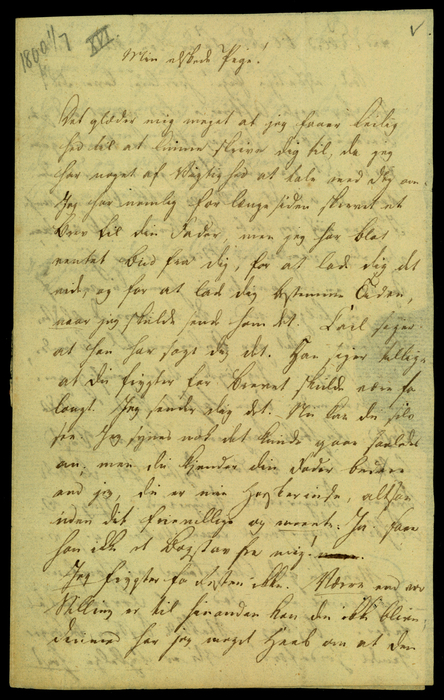 1800 11/7 XVI.
Min elskede Pige.
Det glæder mig meget at jeg faaer Leilig
hed til at kunne skrive dig til, da jeg
har noget af Vigtighed at tale med dig om.
Jeg har nemlig for længe siden skrevet et
Brev til din Fader, men jeg har blot
ventet Bud fra dig, for at lade dig det
vide, og for at lade dig bestemme Tiden,
naar jeg skulde sende ham det. siger
at han har sagt dig det. Han siger tillige
at du frygter for Brevet skulde være for
langt. Jeg sender dig det. Nu kan du selv
see. Jeg synes nok det kunde gaae saaledes
an, men du kiender din Fader bedre
end jeg, du er min Herskerinde, altsaa
uden det og Ja faaer
han ikke et Bogstav fra mig.
Jeg frygter for ikke. Værre end vor
Stilling er til hinanden kan den ikke blive,
desuden har jeg meget Haab om at den